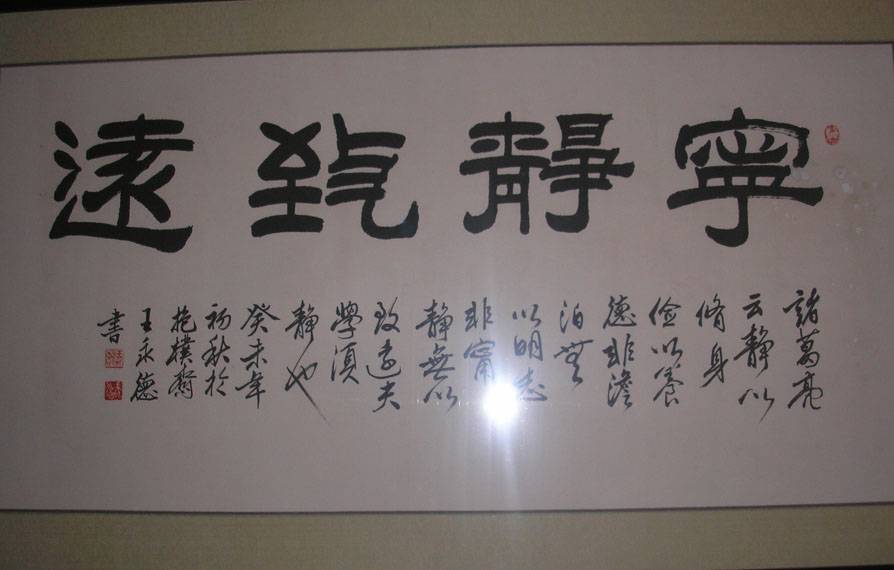 寧靜致遠
諸葛亮
云静以
脩身
俭以養
德非澹
泊無
以明志
非甯
静無以
致遠夫
學須
静也
癸未年
初秋於
抱樸齋
王永德
書